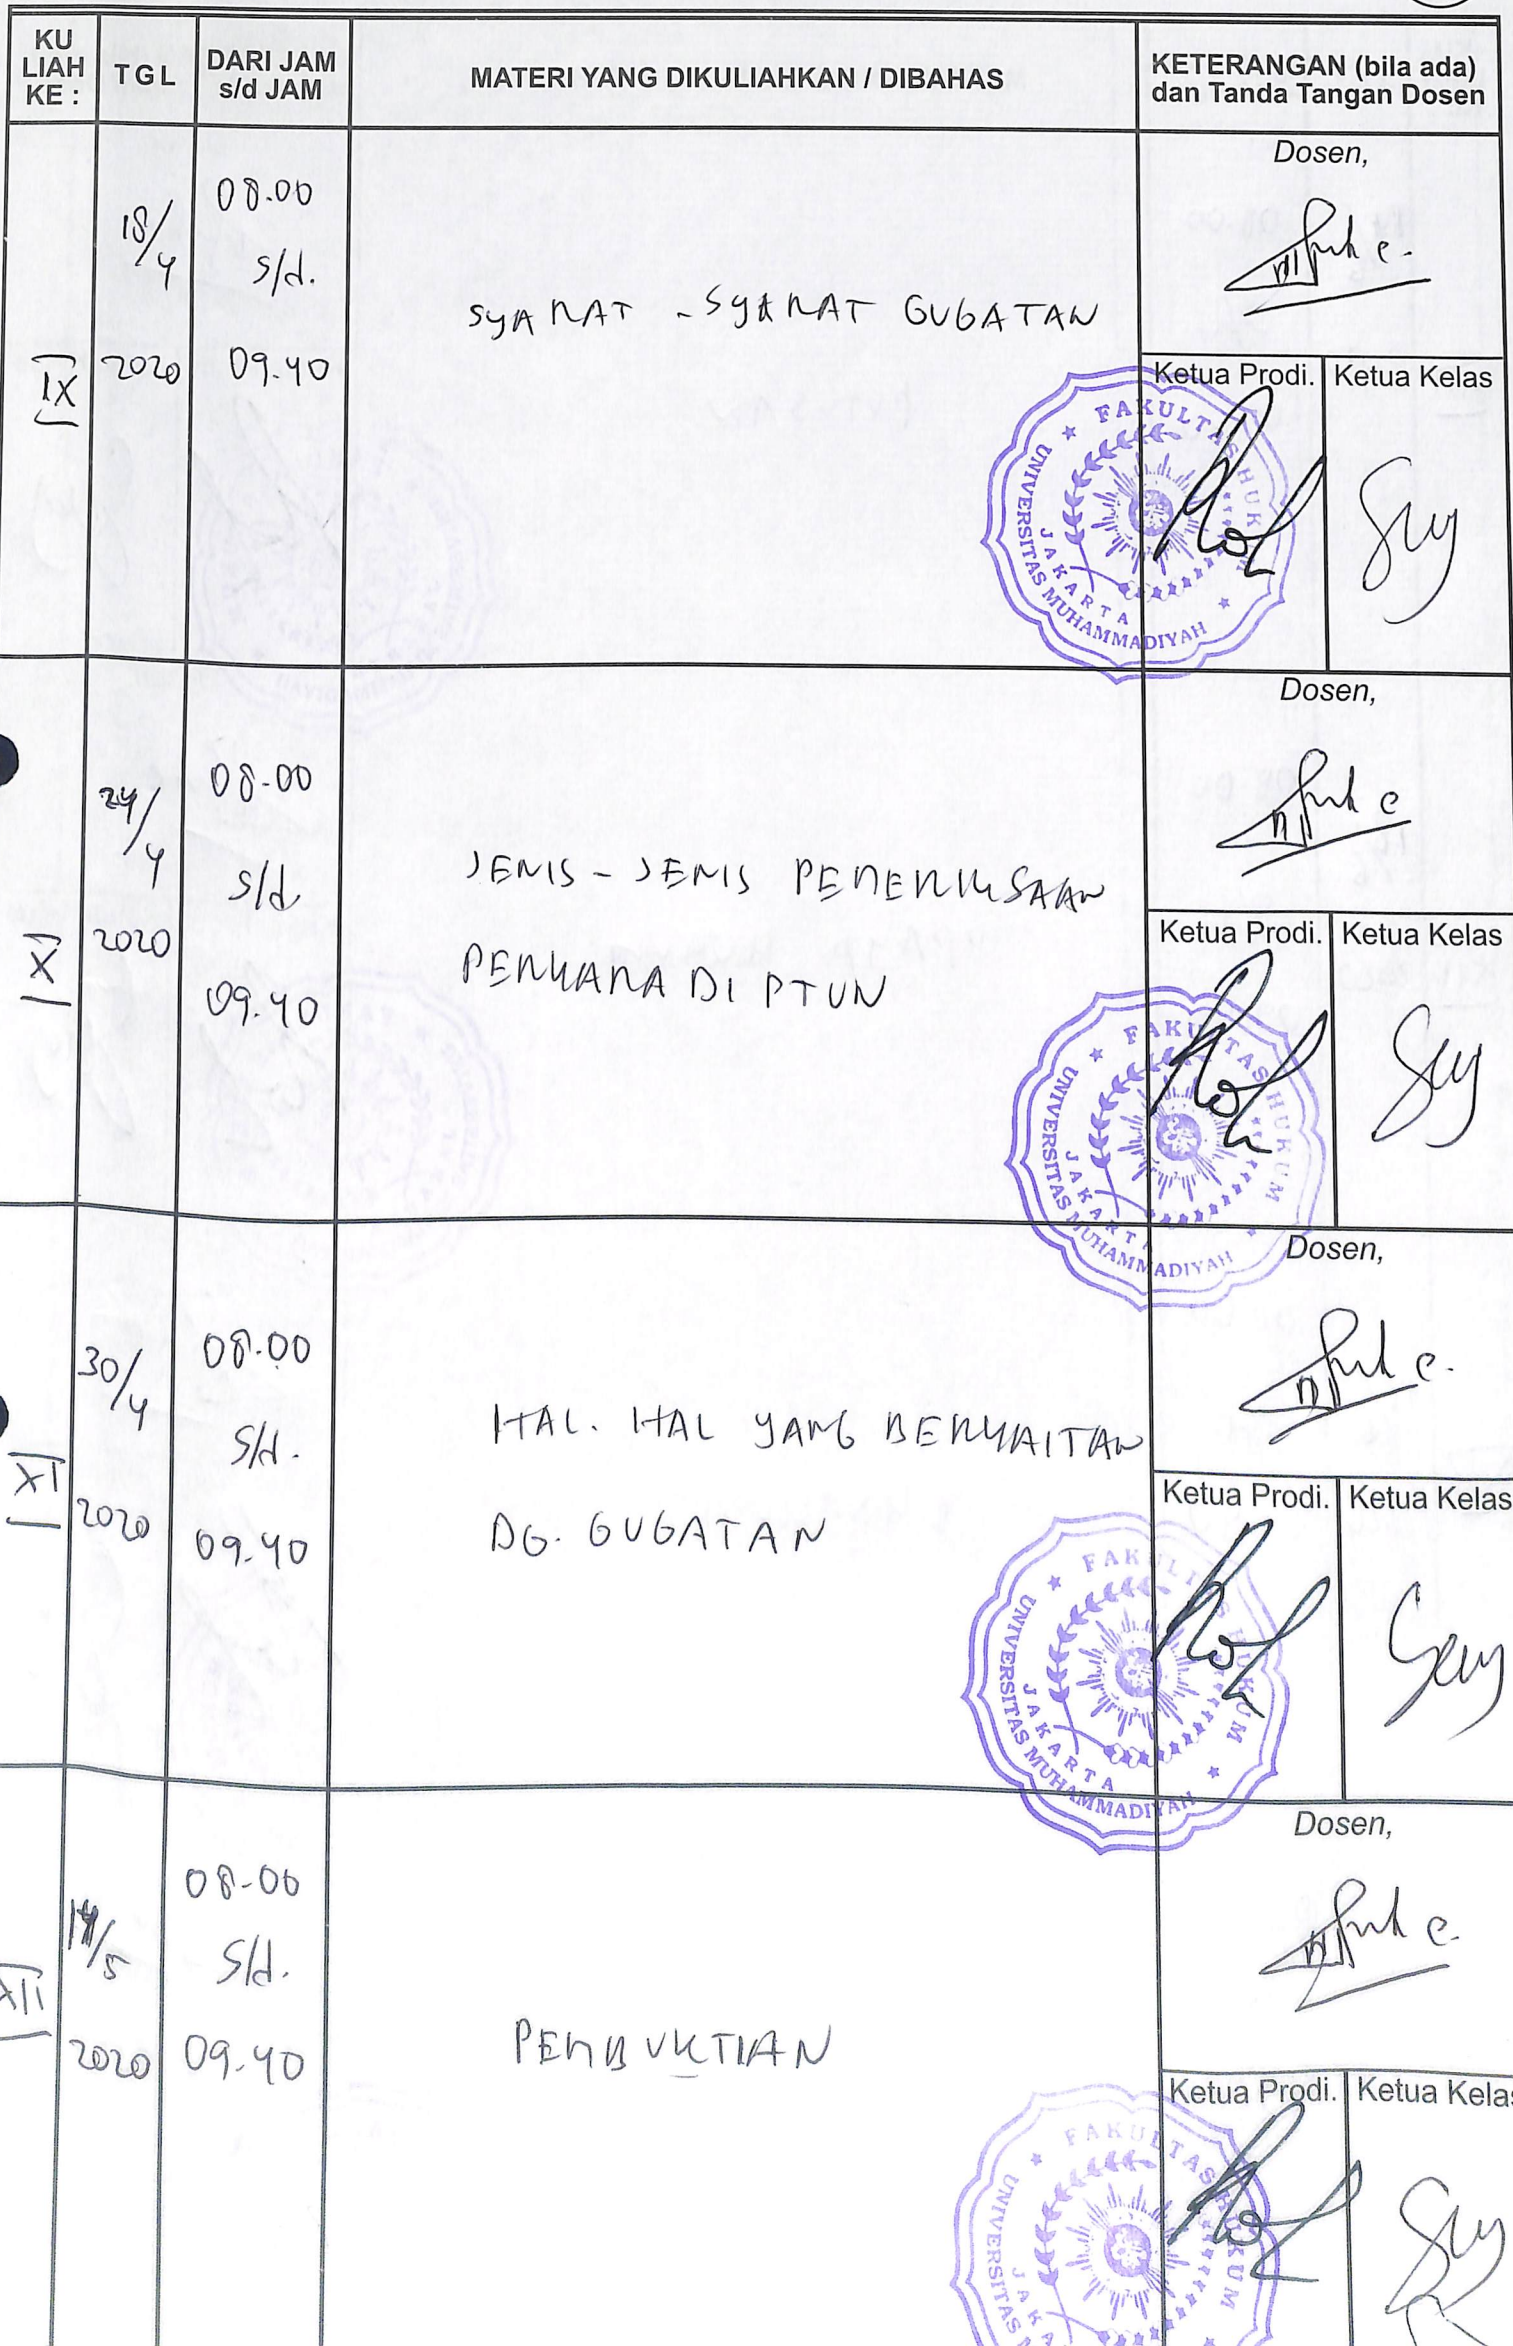 KU
LIAH
KE :
TGL
DARI JAM
s/d JAM
MATERI YANG DIKULIAHKAN / DIBAHAS
KETERANGAN (bila ada)
dan Tanda Tangan Dosen
IX
18/4
2020
08.00
s/d.
09.40
SYARAT - SYARAT GUGATAN
Dosen,
Ketua Prodi.
Ketua Kelas
FAKULTAS HUKUM
UNIVERSITAS MUHAMMADIYAH
JAKARTA
X
24/4
2020
08-00
s/d
09.40
JENIS - JENIS PEMERIKSAAN
PERKARA DI PTUN
Dosen,
Ketua Prodi.
Ketua Kelas
FAKULTAS HUKUM
UNIVERSITAS MUHAMMADIYAH
JAKARTA
XI
30/4
2020
08.00
s/d.
09.40
HAL. HAL YANG BERKAITAN
DG. GUGATAN
Dosen,
Ketua Prodi.
Ketua Kelas
FAKULTAS HUKUM
UNIVERSITAS MUHAMMADIYAH
JAKARTA
XII
/5
2020
08-00
s/d.
09.40
PEMBUKTIAN
Dosen,
Ketua Prodi.
Ketua Kelas
FAKULTAS HUKUM
UNIVERSITAS